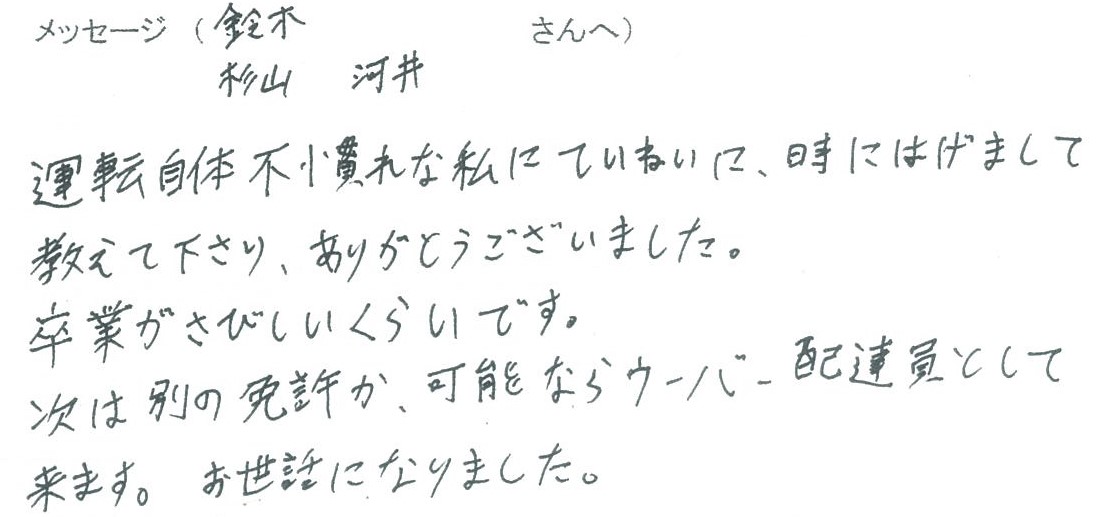 メッセージ（鈴木 さんへ）
杉山 河井
運転自体不慣れな私にていねいに、時にはげまして
教えて下さり、ありがとうございました。
卒業がさびしいくらいです。
次は別の免許か、可能ならウーバー配達員として
来ます。 お世話になりました。